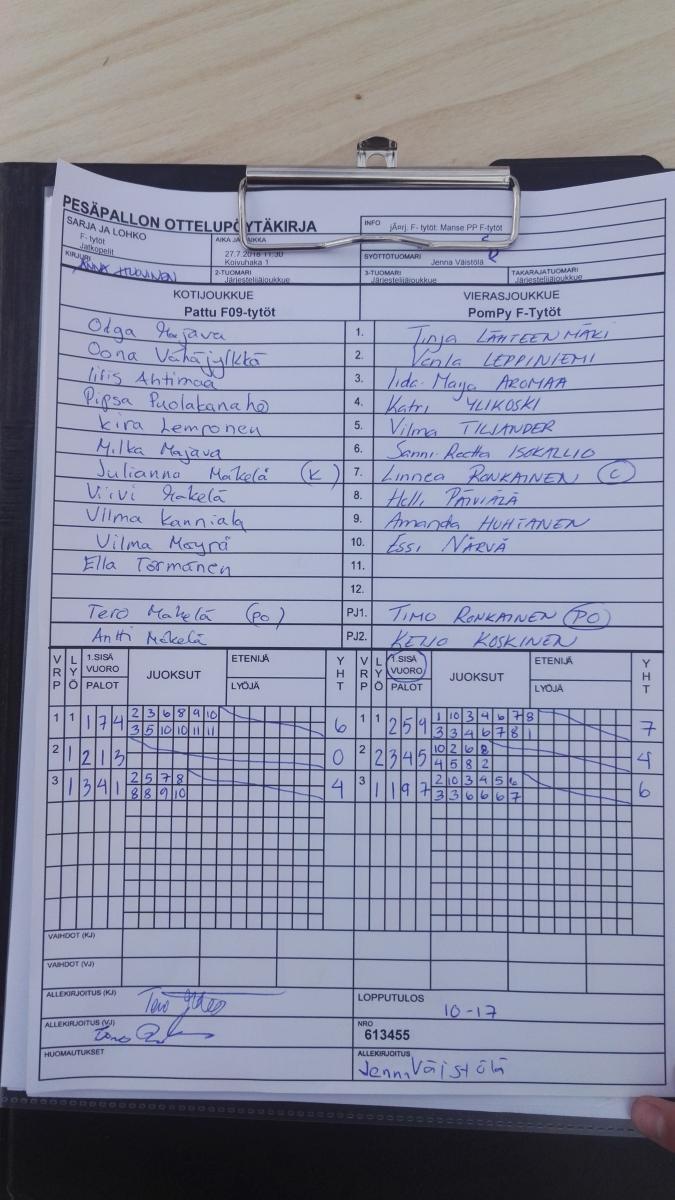 PESÄPALLON OTTELUPÖYTÄKIRJA
SARJA JA LOHKO
F- tytöt
Jatkopelit
AIKA JA PAIKKA
27.7.2018 11:30
Koivuhaka 1
INFO jÄ¤rj: F- tytöt: Manse PP F-tytöt
SYÖTTÖTUOMARI Jenna Väistölä
KIRJURI ANNA HUOVINEN
2-TUOMARI
Järjestelijäjoukkue
3-TUOMARI
Järjestelijäjoukkue
TAKARAJATUOMARI
Järjestelijäjoukkue
KOTIJOUKKUE VIERASJOUKKUE
Pattu F09-tytöt PomPy F-Tytöt
Olga Majava 1. Tinja LÄHTEENMÄKI
Oona Vähäjylkkä 2. Vanla LEPPINIEMI
Iiris Ahtimaa 3. Iida-Maija AROMAA
Pipsa Puolakanaho 4. Katri YLIKOSKI
Kira Lemponen 5. Vilma TILJANDER
Milka Majava 6. Sanni-Reetta ISOKALLIO
Julianna Mäkelä (K) 7. Linnea RONKAINEN (C)
Viivi Mäkelä 8. Helli PÄIVIÄLÄ
Vilma Kanniala 9. Amanda HUHTANEN
Vilma Möyrä 10. Essi NÄRVÄ
Ella Törmänen 11.
12.
Tero Mäkelä (PO) PJ1. TIMO RONKAINEN (PO)
Antti Mäkelä PJ2. KEIJO KOSKINEN
VRP LYÖ 1.SISÄ VUORO PALOT JUOKSUT ETENIJÄ LYÖJÄ YHT VRP LYÖ 1.SISÄ VUORO PALOT JUOKSUT ETENIJÄ LYÖJÄ YHT
1 1 1 7 4 2 3 6 8 9 10 6 1 1 2 5 9 1 10 3 4 6 7 8 7
3 5 10 10 11 11 3 3 4 6 7 8 1
2 1 2 1 3 0 2 2 3 4 5 10 2 6 8 4
4 5 8 2
3 1 3 4 1 2 5 7 8 4 3 1 1 9 7 2 10 3 4 5 6 6
8 8 9 10 3 3 6 6 6 7
VAIHDOT (KJ)
VAIHDOT (VJ)
ALLEKIRJOITUS (KJ)
LOPPUTULOS 10-17
ALLEKIRJOITUS (VJ)
NRO
613455
HUOMAUTUKSET
ALLEKIRJOITUS
Jenna Väistölä